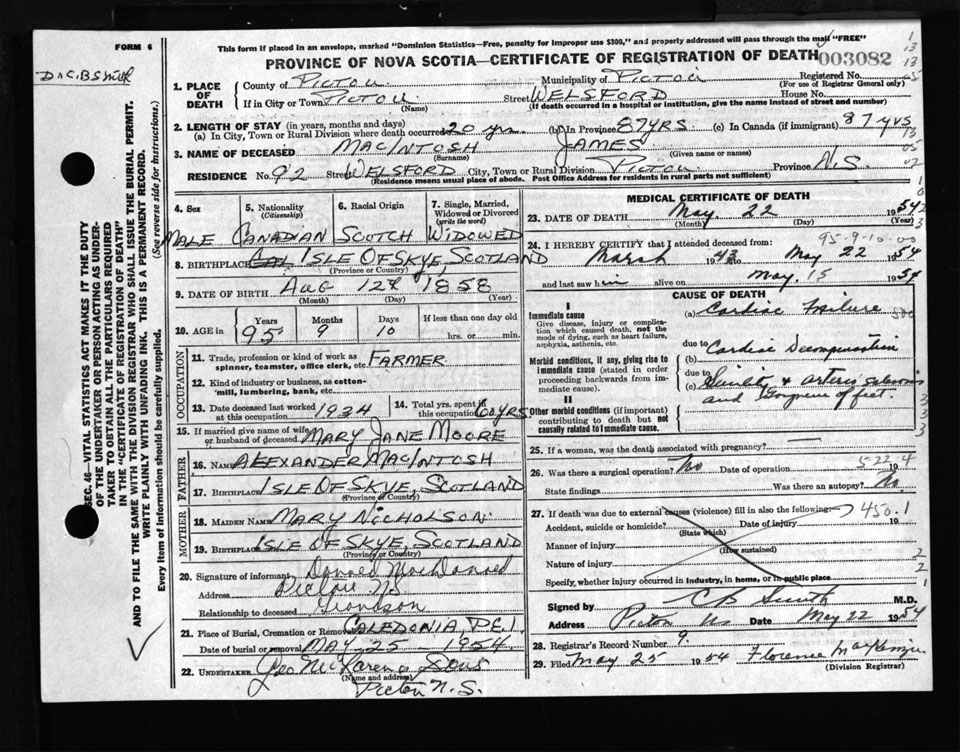 FORM 6
This form if placed in an envelope, marked "Dominion Statistics—Free, penalty for improper use $300," and properly addressed will pass through the mail "FREE"
PROVINCE OF NOVA SCOTIA—CERTIFICATE OF REGISTRATION OF DEATH
003082
Dr C.B Smith
1. PLACE OF DEATH
County of PICTOU Municipality of PICTOU Registered No.
(For use of Registrar General only)
If in City or Town PICTOU (Name) Street WELSFORD House No.
(If death occurred in a hospital or institution, give the name instead of street and number)
2. LENGTH OF STAY (in years, months and days)
(a) In City, Town or Rural Division where death occurred 20 yrs (b) In Province 87YRS (c) In Canada (if immigrant) 87yrs
3. NAME OF DECEASED MACINTOSH JAMES
(Surname) (Given name or names)
RESIDENCE No. 92 Street WELSFORD City, Town or Rural Division PICTOU Province N.S.
(Residence means usual place of abode. Post Office Address for residents in rural parts not sufficient)
4. Sex
5. Nationality (Citizenship)
6. Racial Origin
7. Single, Married, Widowed or Divorced (write the word)
MALE CANADIAN SCOTCH WIDOWED
8. BIRTHPLACE ISLE OF SKYE, SCOTLAND
(Province or Country)
9. DATE OF BIRTH AUG 12th 1858
(Month) (Day) (Year)
10. AGE in
Years Months Days If less than one day old
95 9 10 hrs. or min.
OCCUPATION
11. Trade, profession or kind of work as spinner, teamster, office clerk, etc. FARMER
12. Kind of industry or business, as cotton-mill, lumbering, bank, etc.
13. Date deceased last worked at this occupation 1934
14. Total yrs. spent in this occupation 60YRS
15. If married give name of wife or husband of deceased MARY JANE MOORE
FATHER
16. Name ALEXANDER MACINTOSH
17. Birthplace ISLE OF SKYE, SCOTLAND
(Province or Country)
MOTHER
18. MAIDEN NAME MARY NICHOLSON
19. Birthplace ISLE OF SKYE, SCOTLAND
(Province or Country)
20. Signature of informant Donald MacDonald
Address Pictou N.S
Relationship to deceased Grandson
21. Place of Burial, Cremation or Removal CALEDONIA, P.E.I.
Date of burial or removal MAY 25 1954
22. UNDERTAKER Geo McLaren & Sons
(Name and address)
Pictou N.S.
MEDICAL CERTIFICATE OF DEATH
23. DATE OF DEATH May 22 1954
(Month) (Day) (Year)
95-9-10-00
24. I HEREBY CERTIFY that I attended deceased from:
March 1943 to May 22 1954
and last saw him alive on May 15 1954
CAUSE OF DEATH
I
Immediate cause
Give disease, injury or complication which caused death, not the mode of dying, such as heart failure, asphyxia, asthenia, etc.
(a) Cardiac Failure
due to
Morbid conditions, if any, giving rise to immediate cause (stated in order proceeding backwards from immediate cause).
(b) Cardiac Decompensation
due to
(c) Senility & arterio sclerosis
and Gangrene of feet.
II
Other morbid conditions (if important) contributing to death but not causally related to immediate cause.
25. If a woman, was the death associated with pregnancy?
26. Was there a surgical operation? No Date of operation 19
5 22 4
State findings Was there an autopsy? No.
27. If death was due to external causes (violence) fill in also the following 450.1
Accident, suicide or homicide? Date of injury 19
(State which)
Manner of injury
(How sustained)
Nature of injury
Specify, whether injury occurred in industry, in home, or in public place
Signed by CB Smith M.D.
Address Pictou NS Date May 22 1954
28. Registrar's Record Number 9.
29. Filed May 25 1954 Florence MacKenzie
(Division Registrar)
SEC. 46—VITAL STATISTICS ACT MAKES IT THE DUTY OF THE UNDERTAKER OR PERSON ACTING AS UNDERTAKER TO OBTAIN ALL THE PARTICULARS REQUIRED IN THE "CERTIFICATE OF REGISTRATION OF DEATH" AND TO FILE THE SAME WITH THE DIVISION REGISTRAR WHO SHALL ISSUE THE BURIAL PERMIT.
WRITE PLAINLY WITH UNFADING INK. THIS IS A PERMANENT RECORD.
Every item of information should be carefully supplied. (See reverse side for instructions.)